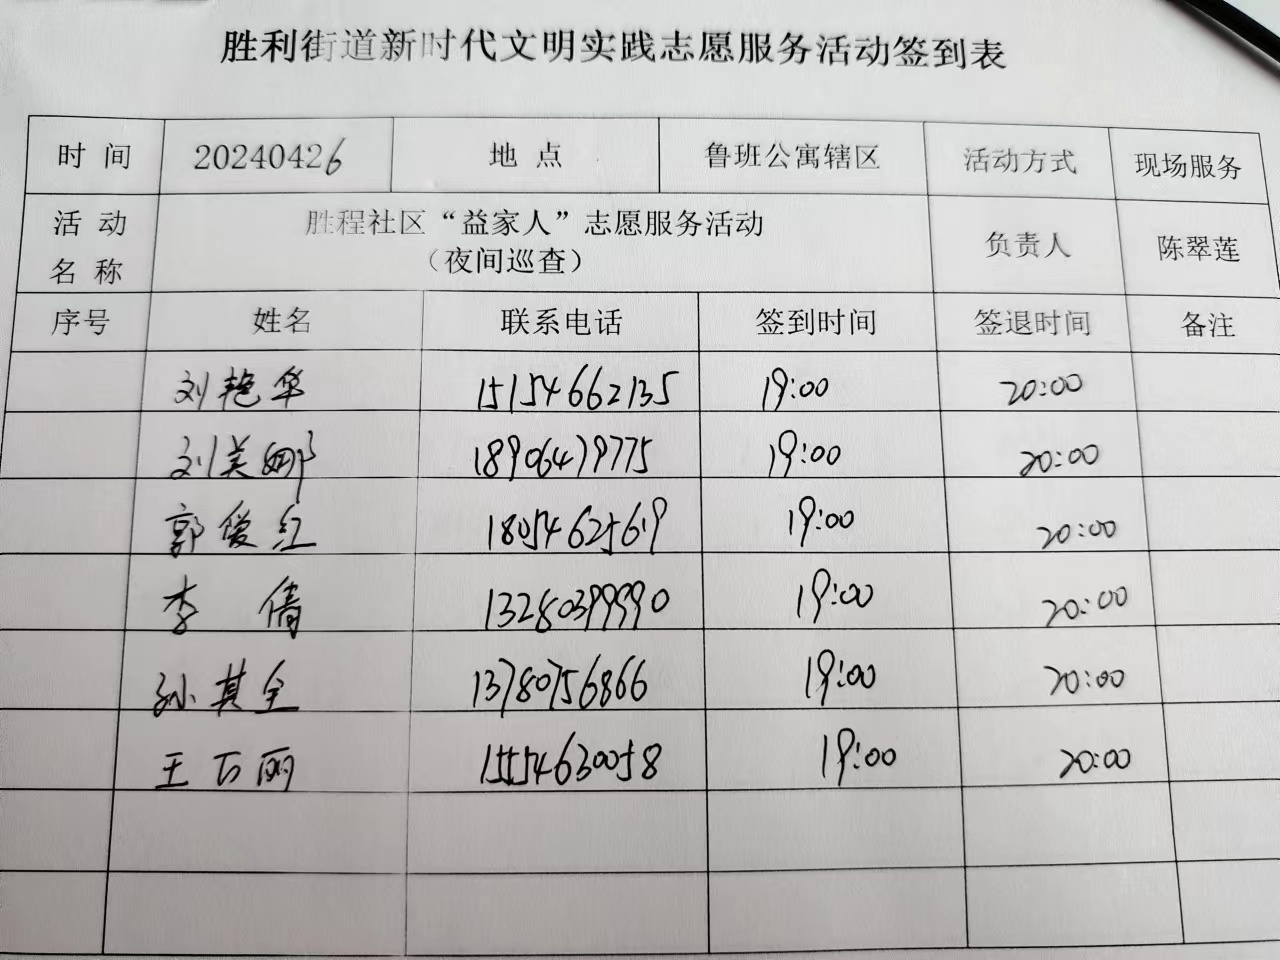 胜利街道新时代文明实践志愿服务活动签到表
时 间 20240426 地 点 鲁班公寓辖区 活动方式 现场服务
活 动 名 称 胜程社区“益家人”志愿服务活动 负责人 陈翠莲
（夜间巡查）
序号 姓名 联系电话 签到时间 签退时间 备注
刘艳华 15154662135 19:00 20:00
刘美娜 18906479775 19:00 20:00
郭爱红 18054625619 19:00 20:00
李倩 13280399990 19:00 20:00
孙其全 13780756866 19:00 20:00
王万丽 15554630058 19:00 20:00